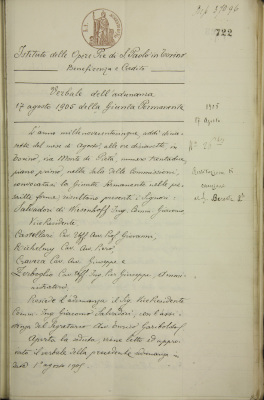 722
Istituto delle Opere Pie di S. Paolo in Torino
Beneficenza e Credito
Verbale dell'adunanza
17 agosto 1905 della Giunta Permanente
1905
17 Agosto
L'anno millenovecentocinque, addì dicias-
sette del mese di Agosto, alle ore diciasette, in
Torino, via Monte di Pietà, numero trentadue,
piano primo, nella Sala delle Commissioni,
convocata la Giunta Permanente nelle pre-
scritte forme, risultano presenti i Signori:
Salvadori di Wiesenhoff Ing. Comm. Giacomo,
Vice Presidente
Castellari Cav. Uff. Avv. Prof. Giovanni,
Richelmy Cav. Avv.
Craveca Cav. Avv. Giuseppe e
Zerboglio Cav. Uff. Ing. Giuseppe, Ammi-
nistratori.
Presiede l'adunanza il Sig. Vice Presidente
Comm. Ing. Giacomo Salvadori, con l'assi-
stenza del Segretario Avv. Enrico Garibaldi.
Aperta la seduta, viene letto ed appro-
vato il verbale della precedente adunanza in
data 1° agosto 1905.